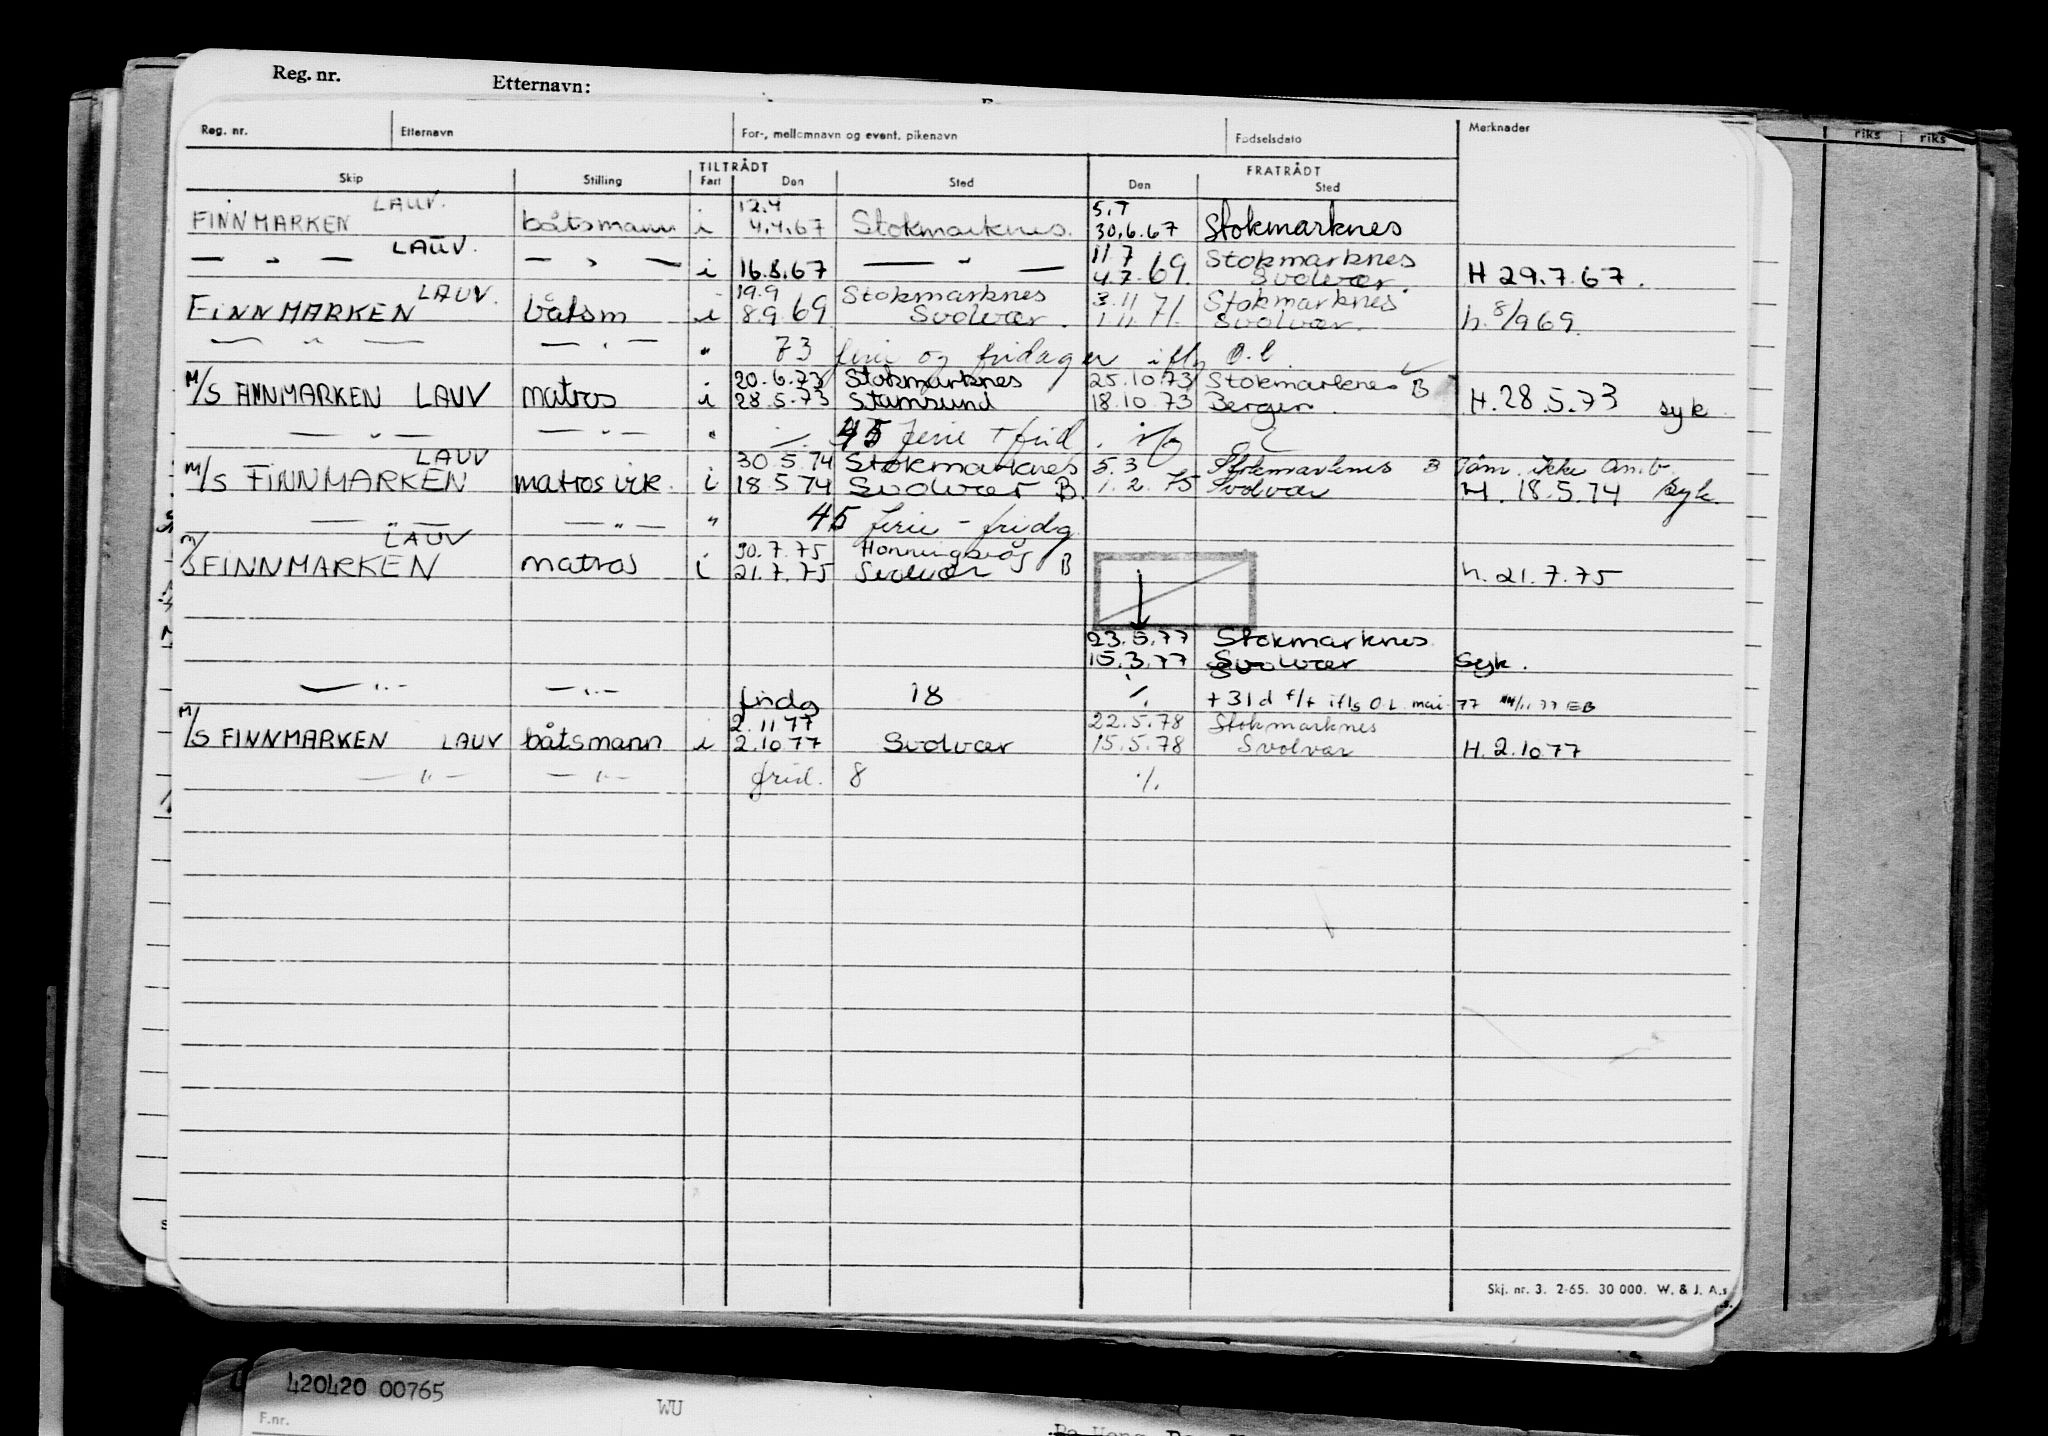 Reg. nr. Etternavn:
Reg. nr. Etternavn For-, mellomnavn og event. pikenavn Fødselsdato Merknader riks riks
TILTRÅDT FRATRÅDT
Skip Stilling Fart Den Sted Den Sted
LAUV. 12.4 5.7
FINNMARKEN båtsmann i 4.4.67 Stokmarknes. 30.6.67 Stokmarknes
LAUV. 11 7 Stokmarknes
— " — — " — i 16.8.67 — " — 4.7.69. Svolvær. H 29.7.67.
LAUV. 19.9 Stokmarknes 3.11 Stokmarknes
FINNMARKEN båtsm i 8.9.69 Svolvær. 1.11.71. Svolvær. h. 8/9 69.
— " — — " — " 73 ferie og fridager ifly O.L
20.6.73 Stokmarknes 25.10.73 Stokmarknes B
M/S FINNMARKEN LAUV matros i 28.5.73 Stamsund 18.10.73 Bergen. H. 28.5.73 syk
— " — — " — " 45 ferie + frid
LAUV 30.5.74 Stokmarknes 5.3 Stokmarknes B Tom. ikke
M/S FINNMARKEN matros vik. i 18 5 74 Svolvær B. 1.2.75 Svolvær H. 18.5.74 syk.
— " — — " — " 45 ferie - fridg
LAUV 30.7.75 Honningsvåg
M/S FINNMARKEN matros i 21.7.75 Svolvær B h. 21.7.75
23.5.77 Stokmarknes
15.3.77 Svolvær Syk.
— " — — " — fridg 18 ./. + 31d f/f ifls O.L. mai 77 EB
2.11 77 22.5.78 Stokmarknes
M/S FINNMARKEN LAUV båtsmann i 2.10 77 Svolvær 15.5.78 Svolvær H. 2.10 77
— " — — " — frid. 8 ./.
Skj. nr. 3. 2-65. 30 000. W. & J. A.s
420420 00765
WU
F.nr.